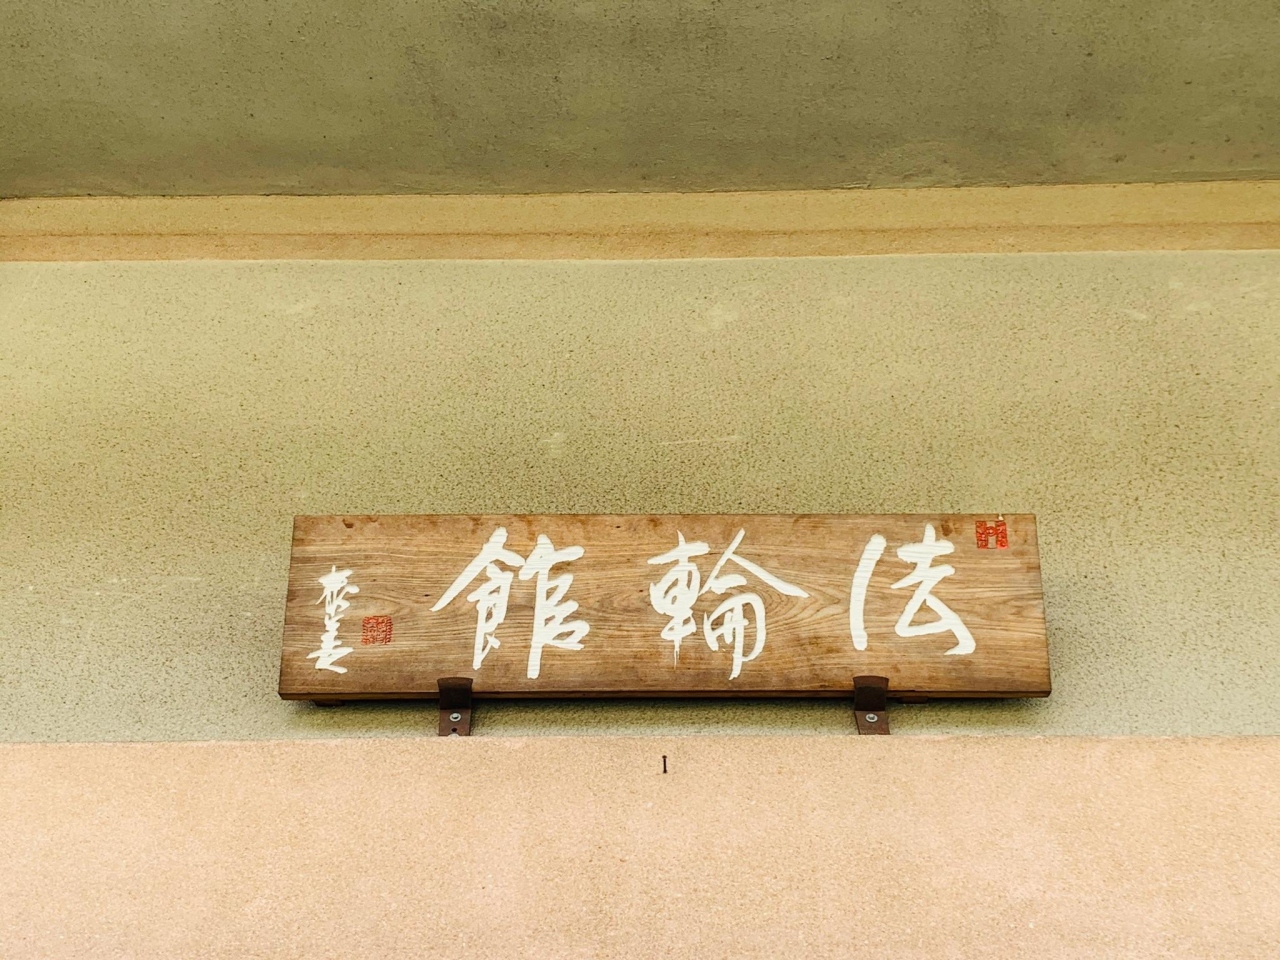 法輪館